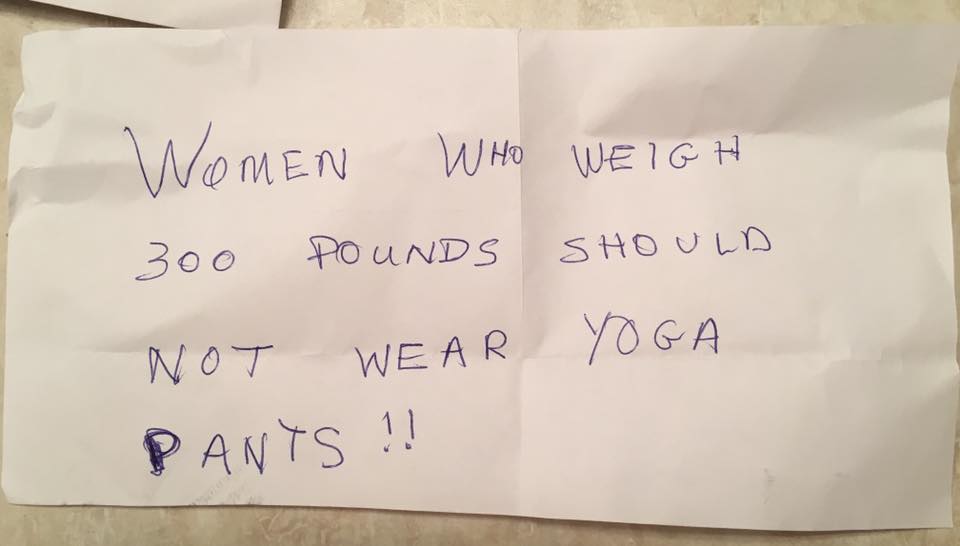 WOMEN WHO WEIGH
300 POUNDS SHOULD
NOT WEAR YOGA
PANTS!!